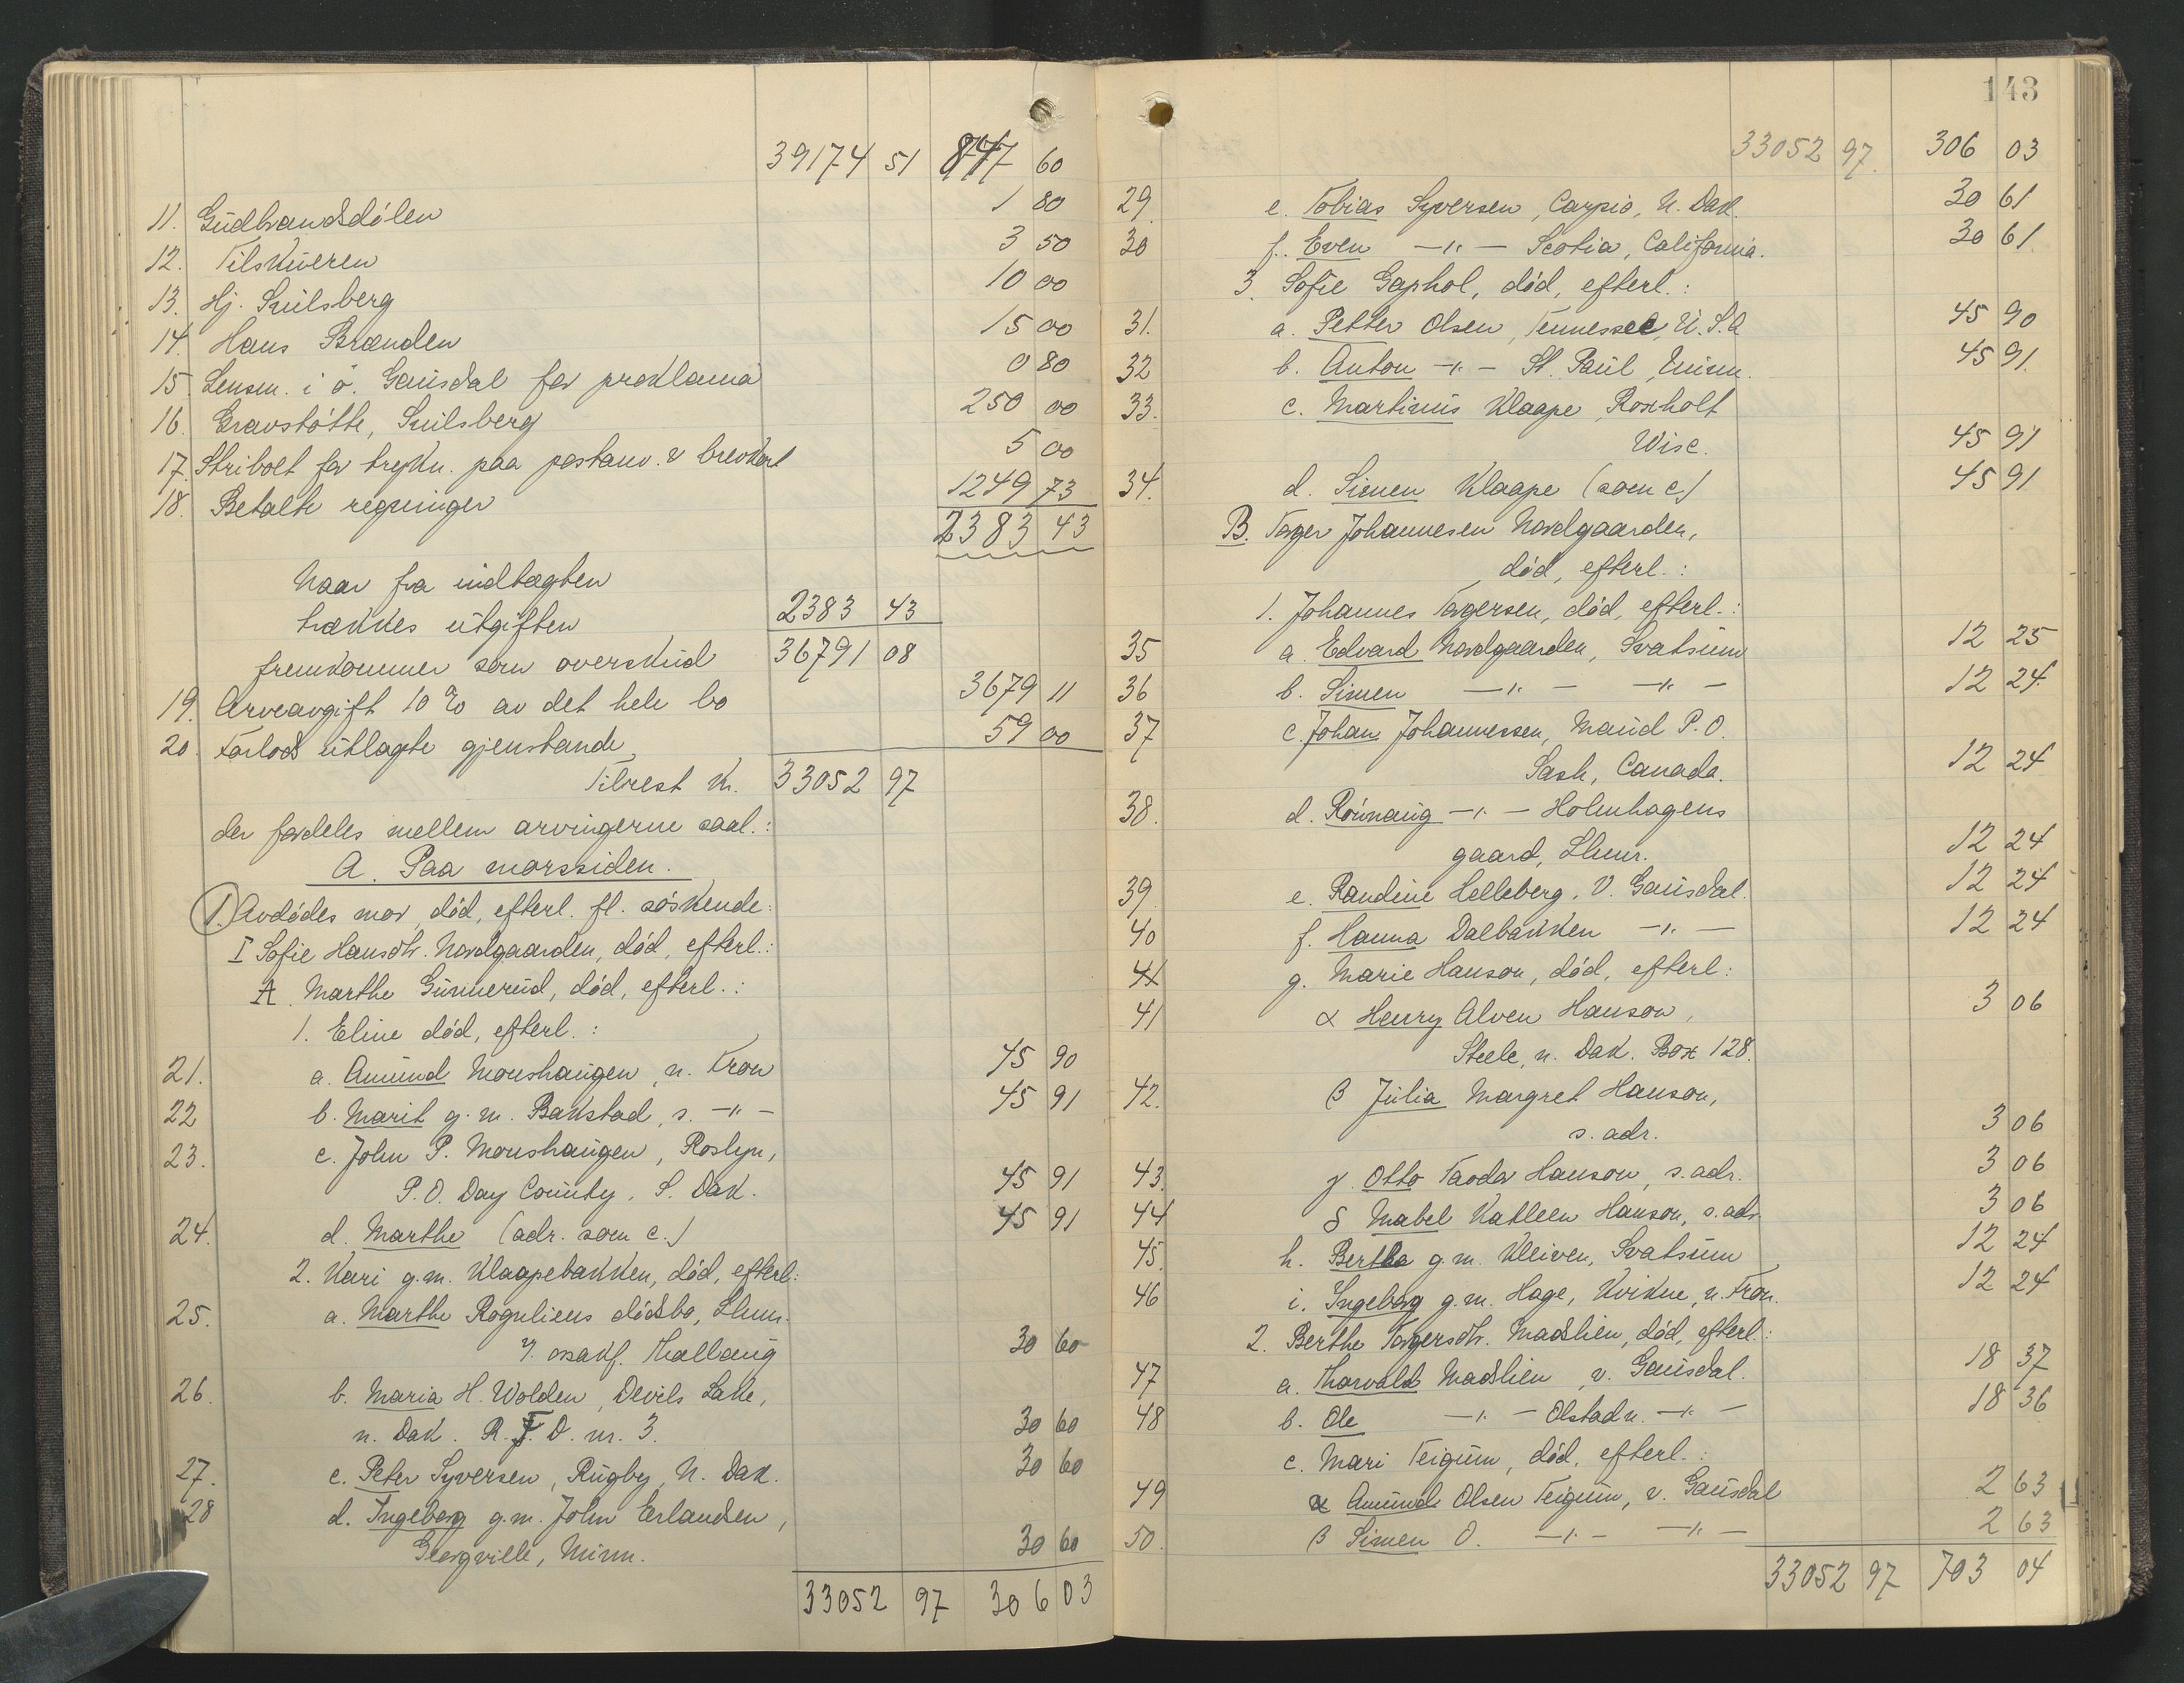 39174 51 847 60
11. Gudbrandsdölen 1 80
12. Tilskueren 3 50
13. Hj. Suilsberg 10 00
14. Hans Brænden 15 00
15. Lensm. i ö. Gausdal for proklama 0 80
16. Gravstötte, Suilsberg 250 00
17. Stribolt for trykn. paa postanv. & brevkort 5 00
18. Betalte regninger 1249 73
2383 43
Naar fra indtægten
trækkes utgiften 2383 43
fremkommer som overskud 36791 08
19. Arveavgift 10 % av det hele bo 3679 11
20. Forlods utlagte gjenstande 59 00
Tilrest kr. 33052 97
der fordeles mellem arvingerne saal.:
A. Paa morssiden.
1. Avdödes mor, död, efterl. fl. söskende:
I Sofie Hansdtr. Nordgaarden, död, efterl.:
A. Marthe Gunnerud, död, efterl.:
1. Eline död, efterl.:
21. a. Amund Moushaugen, n. Fron 45 90
22 b. Marit g.m. Bakstad, s. -"- 45 91
23. c. John P. Moushaugen, Roslyn,
P.O. Day County, S. Dak. 45 91
24. d. Marthe (adr. som c.) 45 91
2. Kari g.m. Klaapebakken, död, efterl:
25. a. Marthe Roguliens dödsbo, Lhmr.
v. osakf. Thallaug 30 60
26. b. Maria H. Wolden, Devils Lake,
n. Dak. R.F.D. nr. 3. 30 60
27. c. Peter Syversen, Rugby, N. Dak. 30 60
28 d. Ingeborg g.m. John Erlandsen,
Georgville, Minn. 30 60
33052 97 306 03
143
33052 97. 306 03
29. e. Tobias Syversen, Carpio, N. Dak. 30 61
30 f. Even -"- Scotia, California. 30 61
3. Sofie Gaphol, död, efterl.:
31. a. Petter Olsen, Tennessee, U.S.A 45 90
32 b. Anton -"- St. Paul, Minn. 45 91.
33. c. Martinus Klaape, Roxholt
Wisc. 45 91
34. d. Simen Klaape (som c.) 45 91
B. Torger Johannesen Nordgaarden,
död, efterl.:
1. Johannes Torgersen, död, efterl.:
35 a. Edvard Nordgaarden, Svatsum 12 25
36 b. Simen -"- -"- 12 24.
37 c. Johan Johannessen, Maud P.O.
Sask, Canada. 12 24
38. d. Rönnaug -"- Holmhagens
gaard, Lhmr. 12 24
39. e. Randine Helleberg, V. Gausdal. 12 24
40 f. Hanna Dalbakken -"- 12 24
41 g. Marie Hanson, död, efterl:
41 α Henry Alven Hanson, 3 06
Steele, n. Dak. Box 128.
42. β Julia Margret Hanson,
s. adr. 3 06
43. γ. Otto Taodor Hanson, s. adr. 3 06
44 δ Mabel Katleen Hanson, s. adr. 3 06
45. h. Bertha g.m. Kleiven, Svatsum 12 24
46 i. Ingeborg g.m. Hage, Kvikne, n. Fron. 12 24
2. Berthe Torgersdtr. Madslien, död, efterl.:
47 a. Thorvald Madslien, v. Gausdal. 18 37
48 b. Ole -"- Olstadn. -"- 18 36
c. Mari Teigum, död, efterl.:
49 α Amund Olsen Teigum, v. Gausdal 2 63
50. β Simen O. -"- -"- 2 63
33052 97 703 04